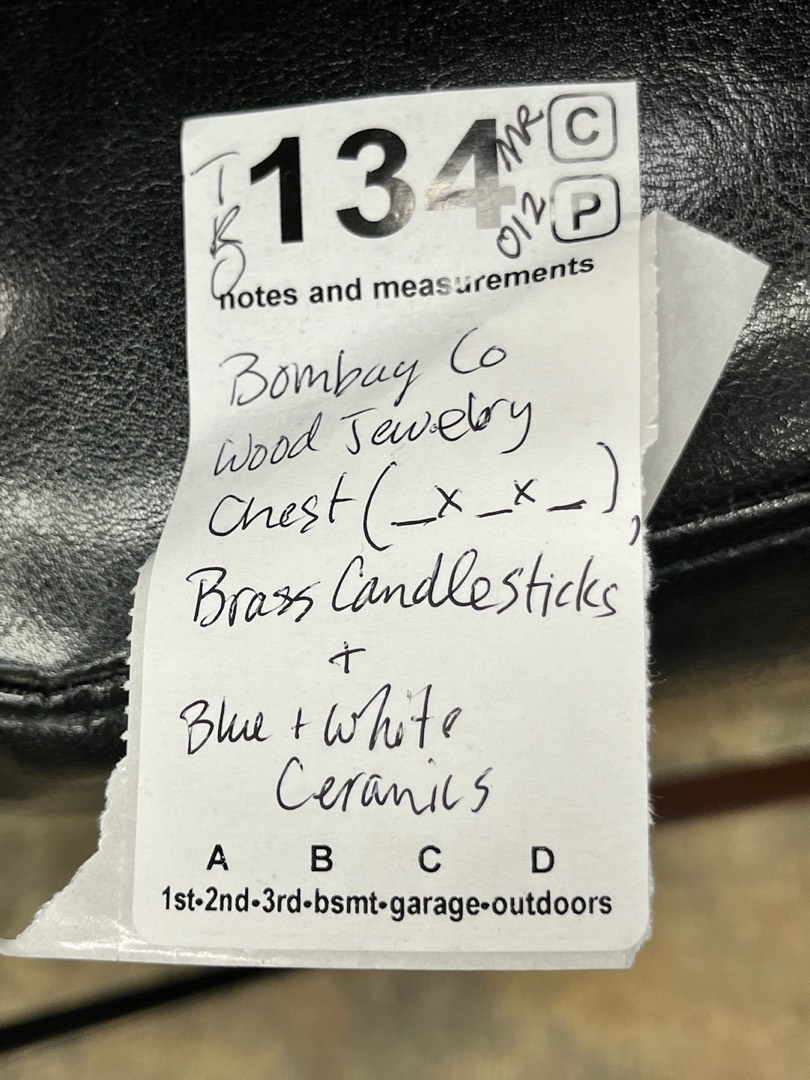 TRO
134
MR
012
C
P
notes and measurements
Bombay Co
Wood Jewelry
Chest (_x_x_),
Brass Candlesticks
+
Blue + White
Ceramics
A B C D
1st•2nd•3rd•bsmt•garage•outdoors